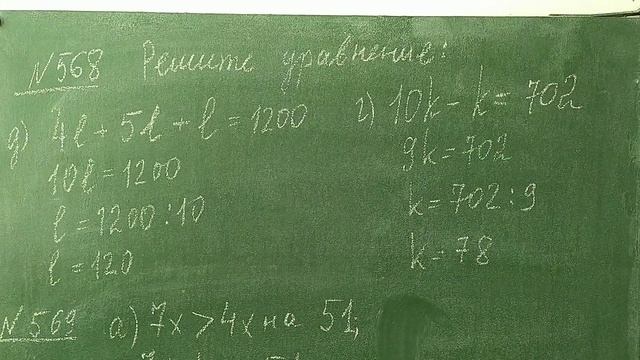 N 568 Решите уравнение:
д) 4l + 5l + l = 1200
10l = 1200
l = 1200 : 10
l = 120
г) 10k - k = 702
9k = 702
k = 702 : 9
k = 78
N 569 а) 7x > 4x на 51;